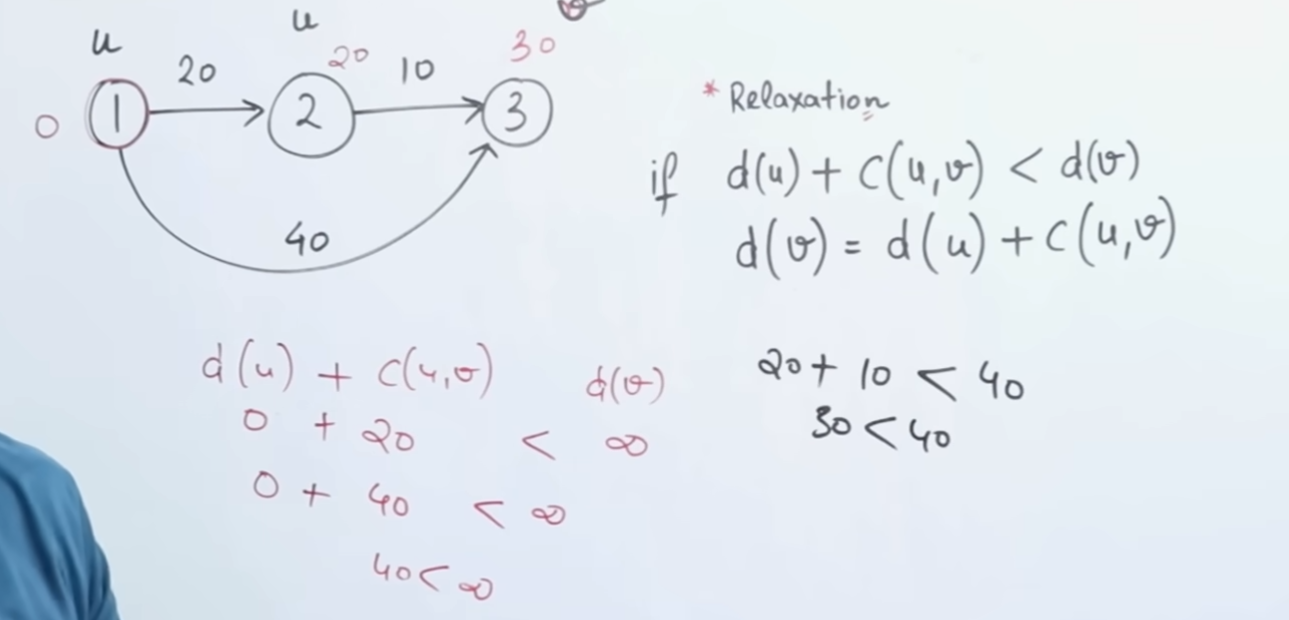 u
u
20
20
10
30
0
1
2
3
40
* Relaxation
if d(u) + c(u,v) < d(v)
d(v) = d(u) + c(u,v)
d(u) + c(u,v) d(v)
0 + 20 < ∞
0 + 40 < ∞
40 < ∞
20 + 10 < 40
30 < 40